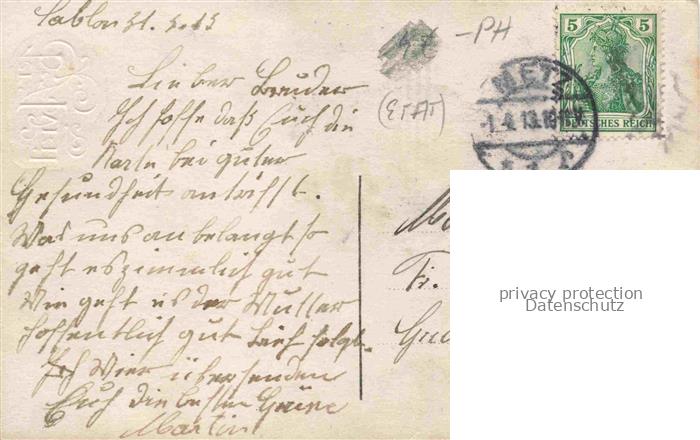 Sablon 31. 3. 13
-PH
Lieber Bruder
(ETAT)
Ich hoffe daß Euch die
Karte bei guter
Gesundheit antrifft.
Was uns anbelangt so
geht es ziemlich gut
Wie geht es der Mutter
hoffentlich gut Brief folgt.
Wier übersenden
Euch die besten Grüße
Martin
5 5
DEUTSCHES REICH
METZ
1.4.13.
Fr.
privacy protection
Datenschutz